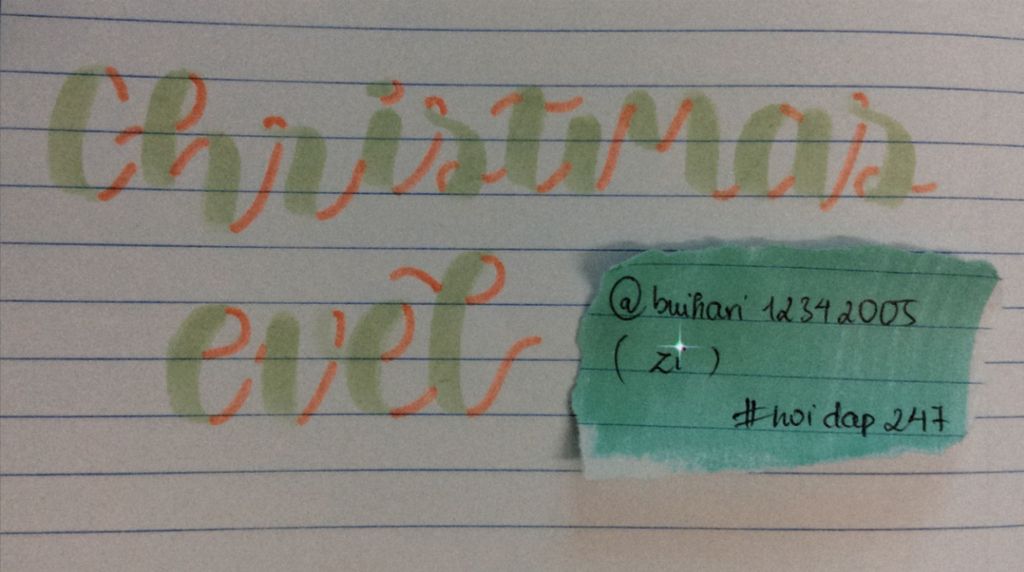 Christmas
evel
@buihari12342005
( zi )
#hoidap247